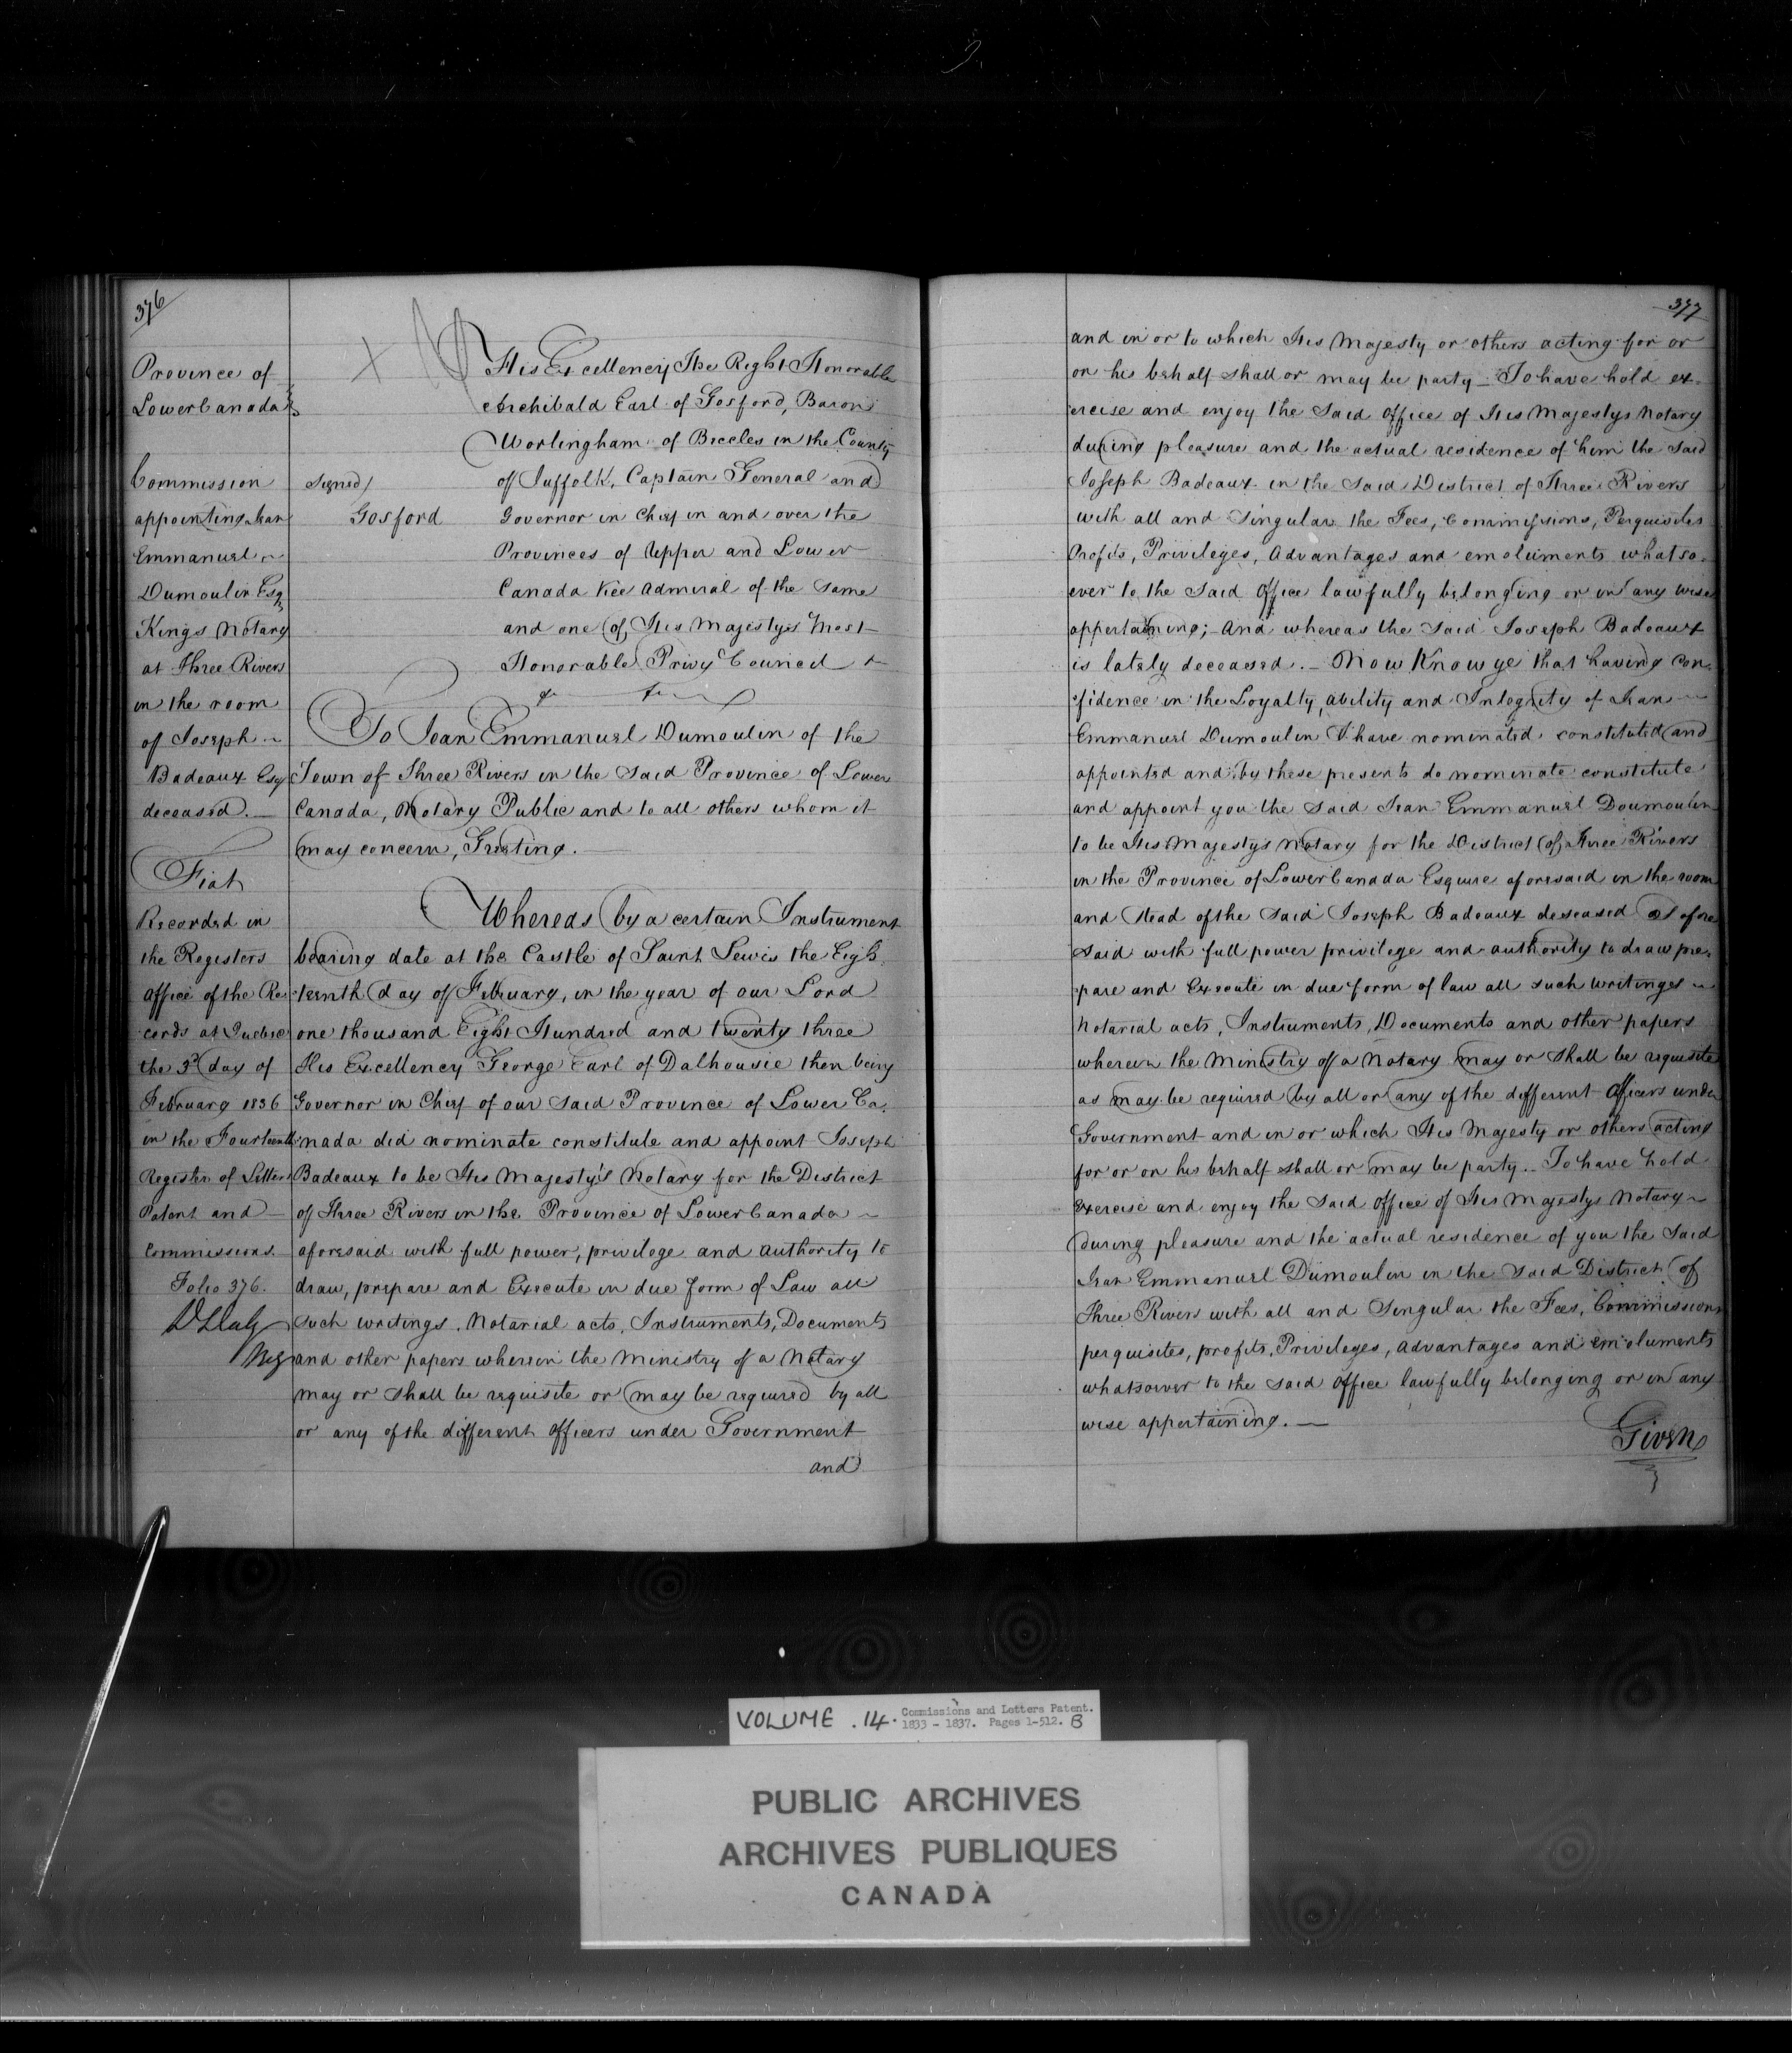 376
Province of
Lower Canada
Commission
appointing Jean
Emmanuel
Dumoulin Esq
Kings Notary
at Three Rivers
in the room
of Joseph
Badeaux Esq
deceased.—
Fiat
Recorded in
the Registers
office of the Re-
cords at Quebec
the 3d day of
February 1836
in the Fourteenth
Register of Letters
Patent and
Commissions.
Folio 376.
D Daly
Reg
signed/
Gosford
His Excellency The Right Honorable
Archibald Earl of Gosford, Baron
Worlingham of Beccles in the County
of Suffolk, Captain General and
Governor in Chief in and over the
Provinces of Upper and Lower
Canada Vice Admiral of the same
and one of His Majestys Most
Honorable Privy Council &
& &
To Jean Emmanuel Dumoulin of the
Town of Three Rivers in the said Province of Lower
Canada, Notary Public and to all others whom it
may concern, Greeting.—
Whereas by a certain Instrument
bearing date at the Castle of Saint Lewis the Eigh-
teenth day of February, in the year of our Lord
one thousand Eight Hundred and twenty three
His Excellency George Earl of Dalhousie then being
Governor in Chief of our said Province of Lower Ca-
nada did nominate constitute and appoint Joseph
Badeaux to be His Majesty's Notary for the District
of Three Rivers in the Province of Lower Canada
aforesaid with full power, privilege and authority to
draw, prepare and Execute in due form of Law all
such writings, Notarial acts, Instruments, Documents
and other papers wherein the Ministry of a Notary
may or shall be requisite or may be required by all
or any of the different officers under Government
and
377
and in or to which His Majesty or others acting for or
on his behalf shall or may be party – To have hold ex-
ercise and enjoy the said office of His Majestys Notary
during pleasure and the actual residence of him the said
Joseph Badeaux in the said District of Three Rivers
with all and Singular the Fees, Commissions, Perquisites
Profits, Privileges, Advantages and emoluments whatso-
ever to the said office lawfully belonging or in any wise
appertaining; – And whereas the said Joseph Badeaux
is lately deceased. – Now Know ye that having con-
fidence in the Loyalty, ability and Integrity of Jean
Emmanuel Dumoulin I have nominated constituted and
appointed and by these presents do nominate constitute
and appoint you the said Jean Emmanuel Doumoulin
to be His Majestys Notary for the District of Three Rivers
in the Province of Lower Canada Esquire aforesaid in the room
and stead of the said Joseph Badeaux deseased as afore
said with full power privilege and authority to draw pre-
pare and Execute in due form of law all such writings
Notarial acts, Instruments, Documents and other papers
wherein the Ministry of a Notary may or shall be requisite
as may be required by all or any of the different officers under
Government and in or which His Majesty or others acting
for or on his behalf shall or may be party. – To have hold
exercise and enjoy the said office of His Majestys Notary
during pleasure and the actual residence of you the said
Jean Emmanuel Dumoulin in the said District of
Three Rivers with all and Singular the Fees, Commissions
perquisites, profits, Privileges, advantages and emoluments
whatsoever to the said office lawfully belonging or in any
wise appertaining. —
Given
VOLUME .14. Commissions and Letters Patent.
1833 - 1837. Pages 1-512. B
PUBLIC ARCHIVES
ARCHIVES PUBLIQUES
CANADA